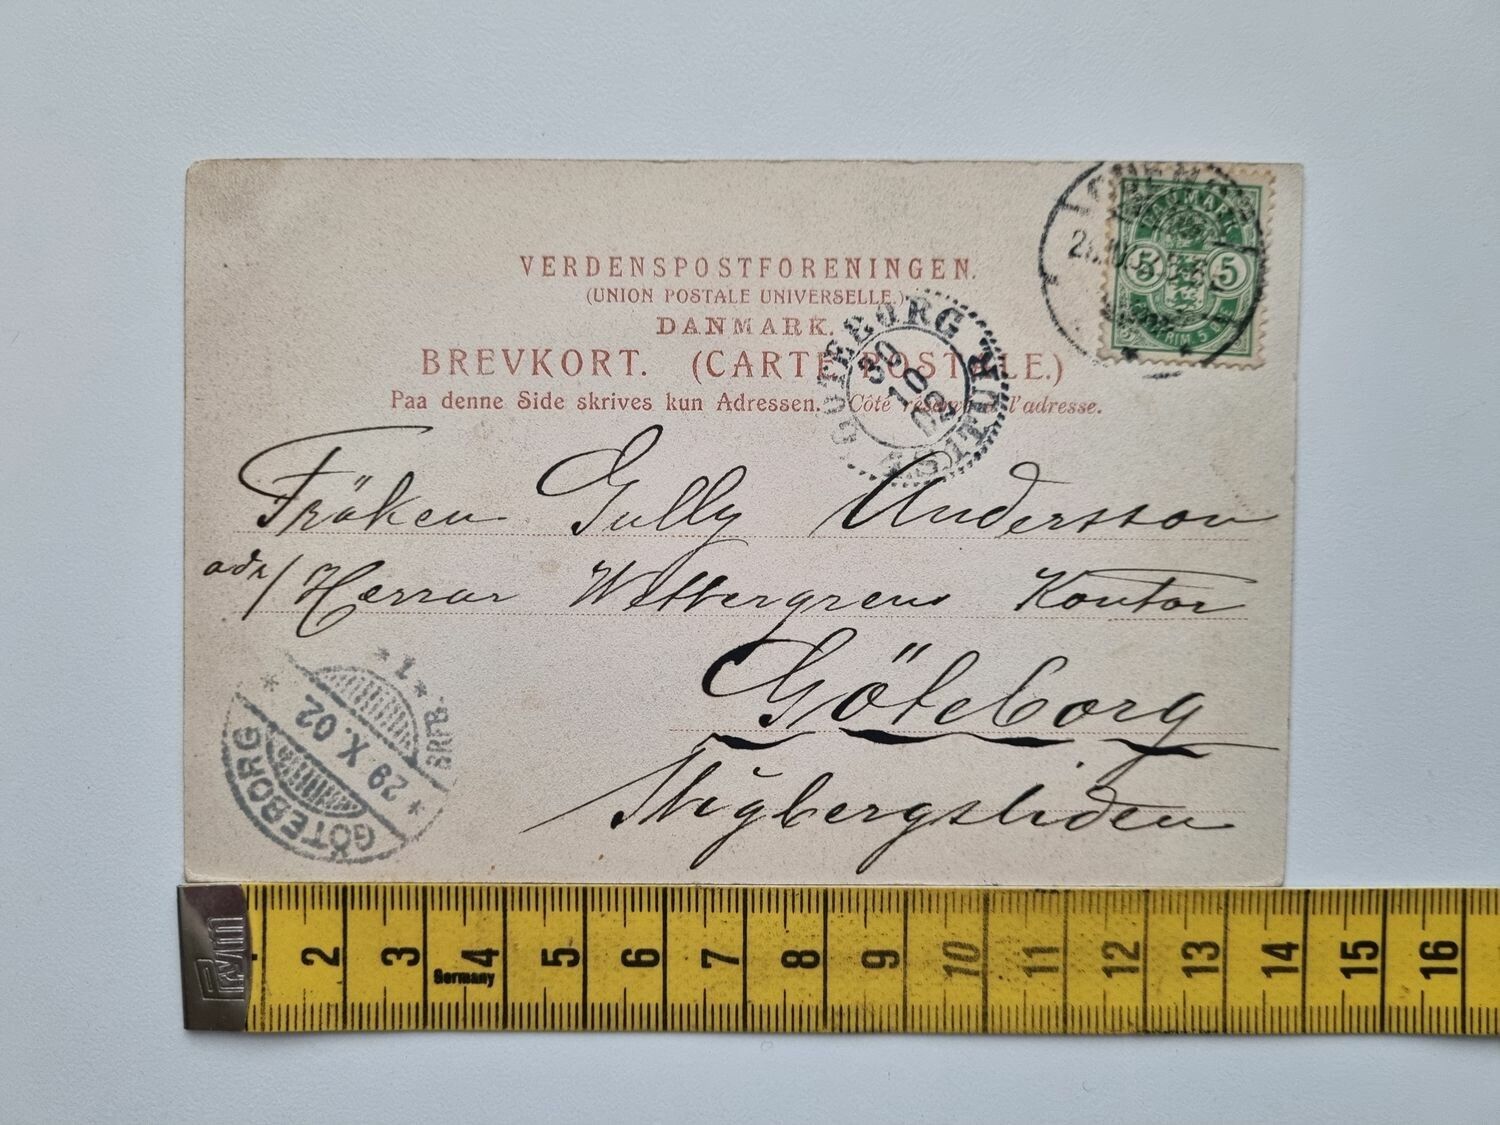 VERDENSPOSTFORENINGEN.
(UNION POSTALE UNIVERSELLE.)
DANMARK.
BREVKORT. (CARTE POSTALE.)
Paa denne Side skrives kun Adressen. Côté réservé à l'adresse.
DANMARK
5 5
GÖTEBORG
30
10
02
Fröken Gully Andersson
adr/ Herrar Wettergrens Kontor
Göteborg
Stigbergsliden
*1*
GÖTEBORG
* 29 X. 02 *
BRFB.
Prym
2 3 4 5 6 7 8 9 10 11 12 13 14 15 16
Germany